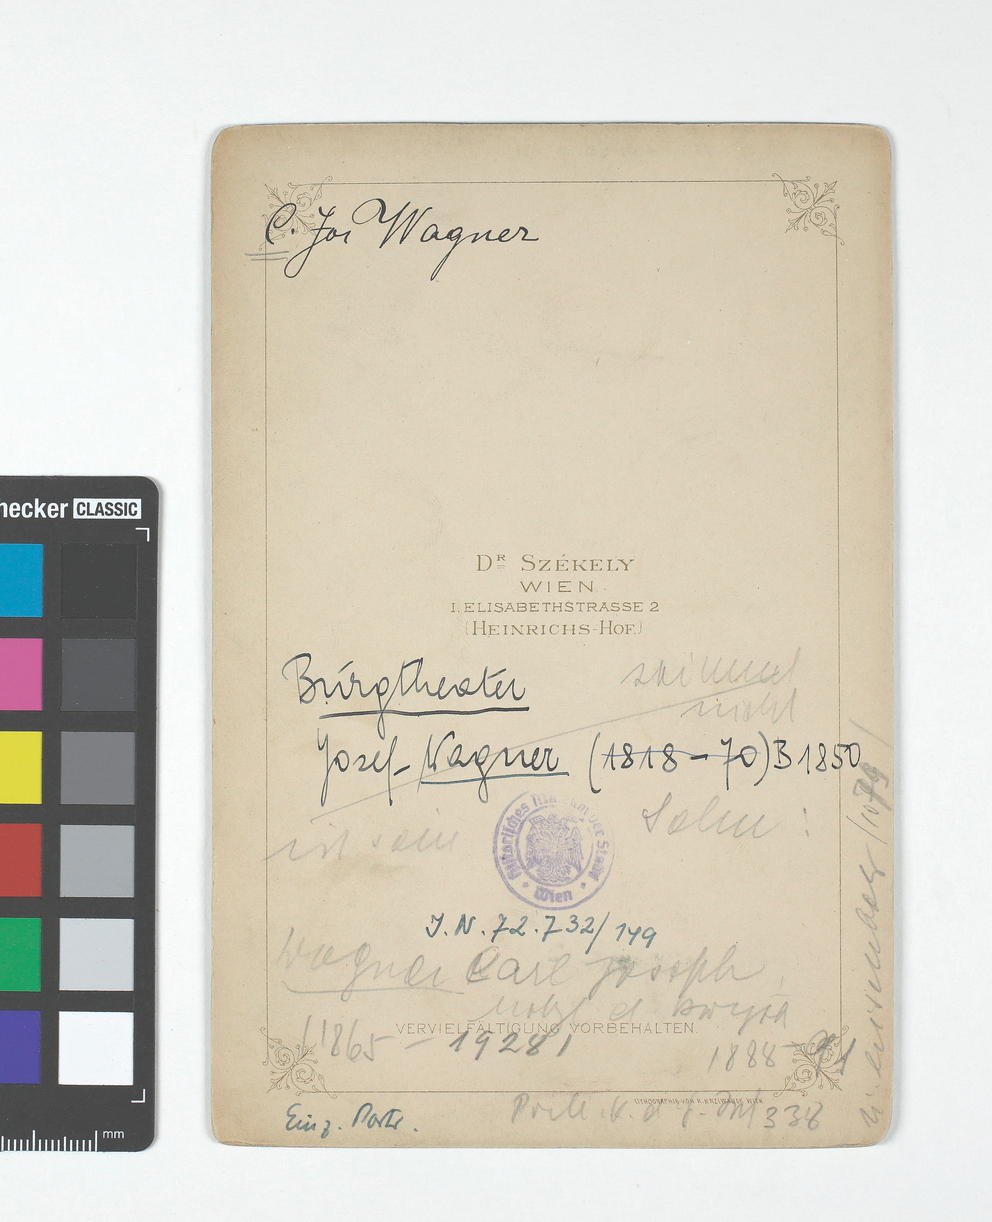 C. Jos Wagner
DR SZÉKELY
WIEN.
I. ELISABETHSTRASSE 2
(HEINRICHS-HOF.)
Burgtheater
stimmt
nicht
Josef Wagner (1818-70) B 1850
ist sein Sohn:
Historisches Museum der Stadt
Wien
J.N. 72.732/149
Wagner Carl Joseph
VERVIELFÄLTIGUNG VORBEHALTEN.
(1865 - 1928)
1888
LITHOGRAPHIE VON K. KRZIWANEK WIEN
Einz. Portr.
338
necker CLASSIC
mm